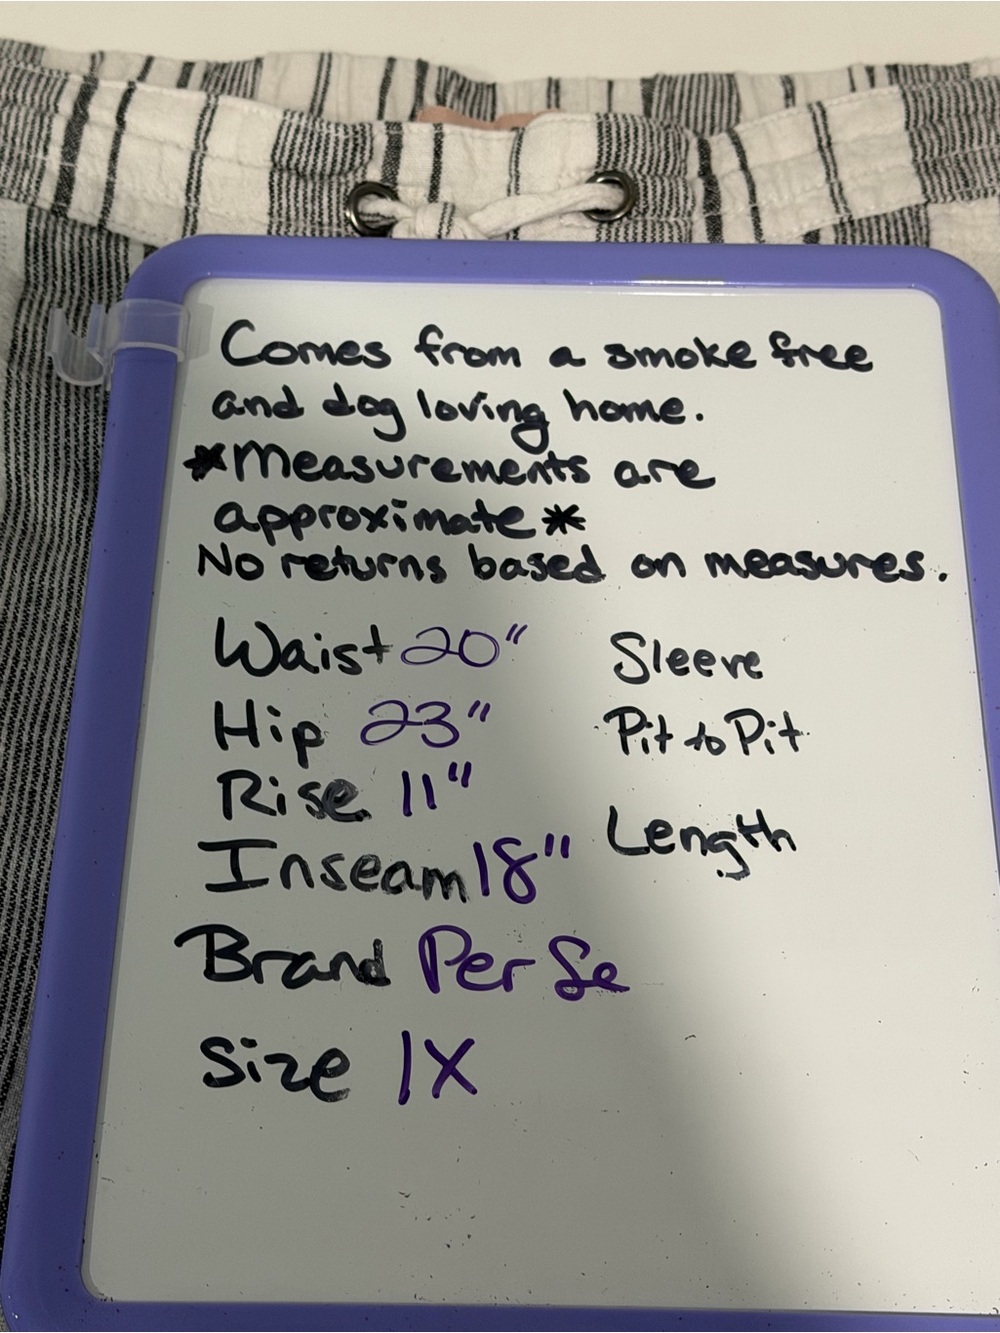 Comes from a smoke free
and dog loving home.
*Measurements are
approximate*
No returns based on measures.
Waist 20"
Hip 23"
Rise 11"
Inseam 18"
Brand Per Se
Size 1X
Sleeve
Pit to Pit
Length